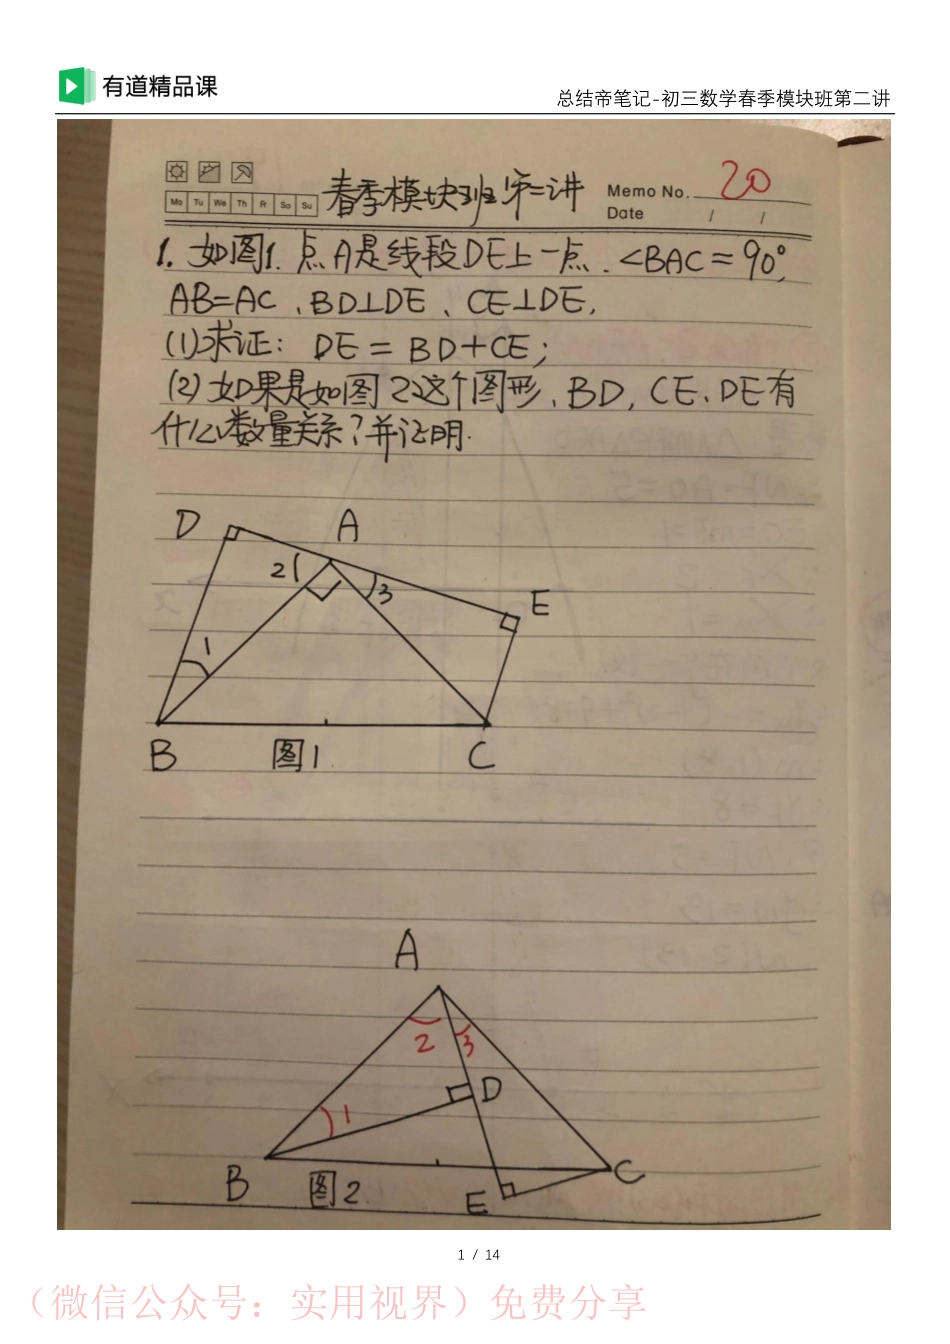 有道精品课
总结帝笔记-初三数学春季模块班第二讲
Mo Tu We Th Fr Sa Su
春季模块班第二讲
Memo No. 20
Date / /
1. 如图1.点A是线段DE上一点.∠BAC=90°,
AB=AC、BD⊥DE、CE⊥DE,
(1)求证: DE=BD+CE;
(2)如果是如图2这个图形、BD, CE、DE有
什么数量关系?并证明.
D A
2 3
E
1
B 图1 C
A
2 3
D
1
B 图2 E C
1 / 14
（微信公众号：实用视界）免费分享